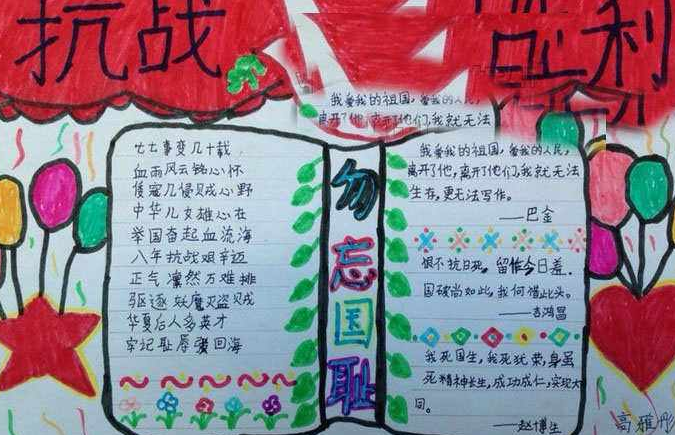 抗战 利
我爱我的祖国，爱我的人民，
离开了他，离开了他们，我就无法
七七事变几十载，
血雨风云铭心怀
倭寇几慢贼心野
中华儿女雄心在
举国奋起血流海
八年抗战艰辛迈
正气凛然万难排
驱逐妖魔灭盗贼
华夏后人多英才
牢记耻辱爱回海
勿
忘
国
耻
我爱我的祖国，爱我的人民，
离开了他，离开了他们，我就无法
生存，更无法写作。
——巴金
恨不抗日死，留作今日羞。
国破尚如此，我何惜此头。
——吉鸿昌
我死国生，我死犹荣，身虽
死精神长生，成功成仁，实现大
同。
——赵博生
高雅彤